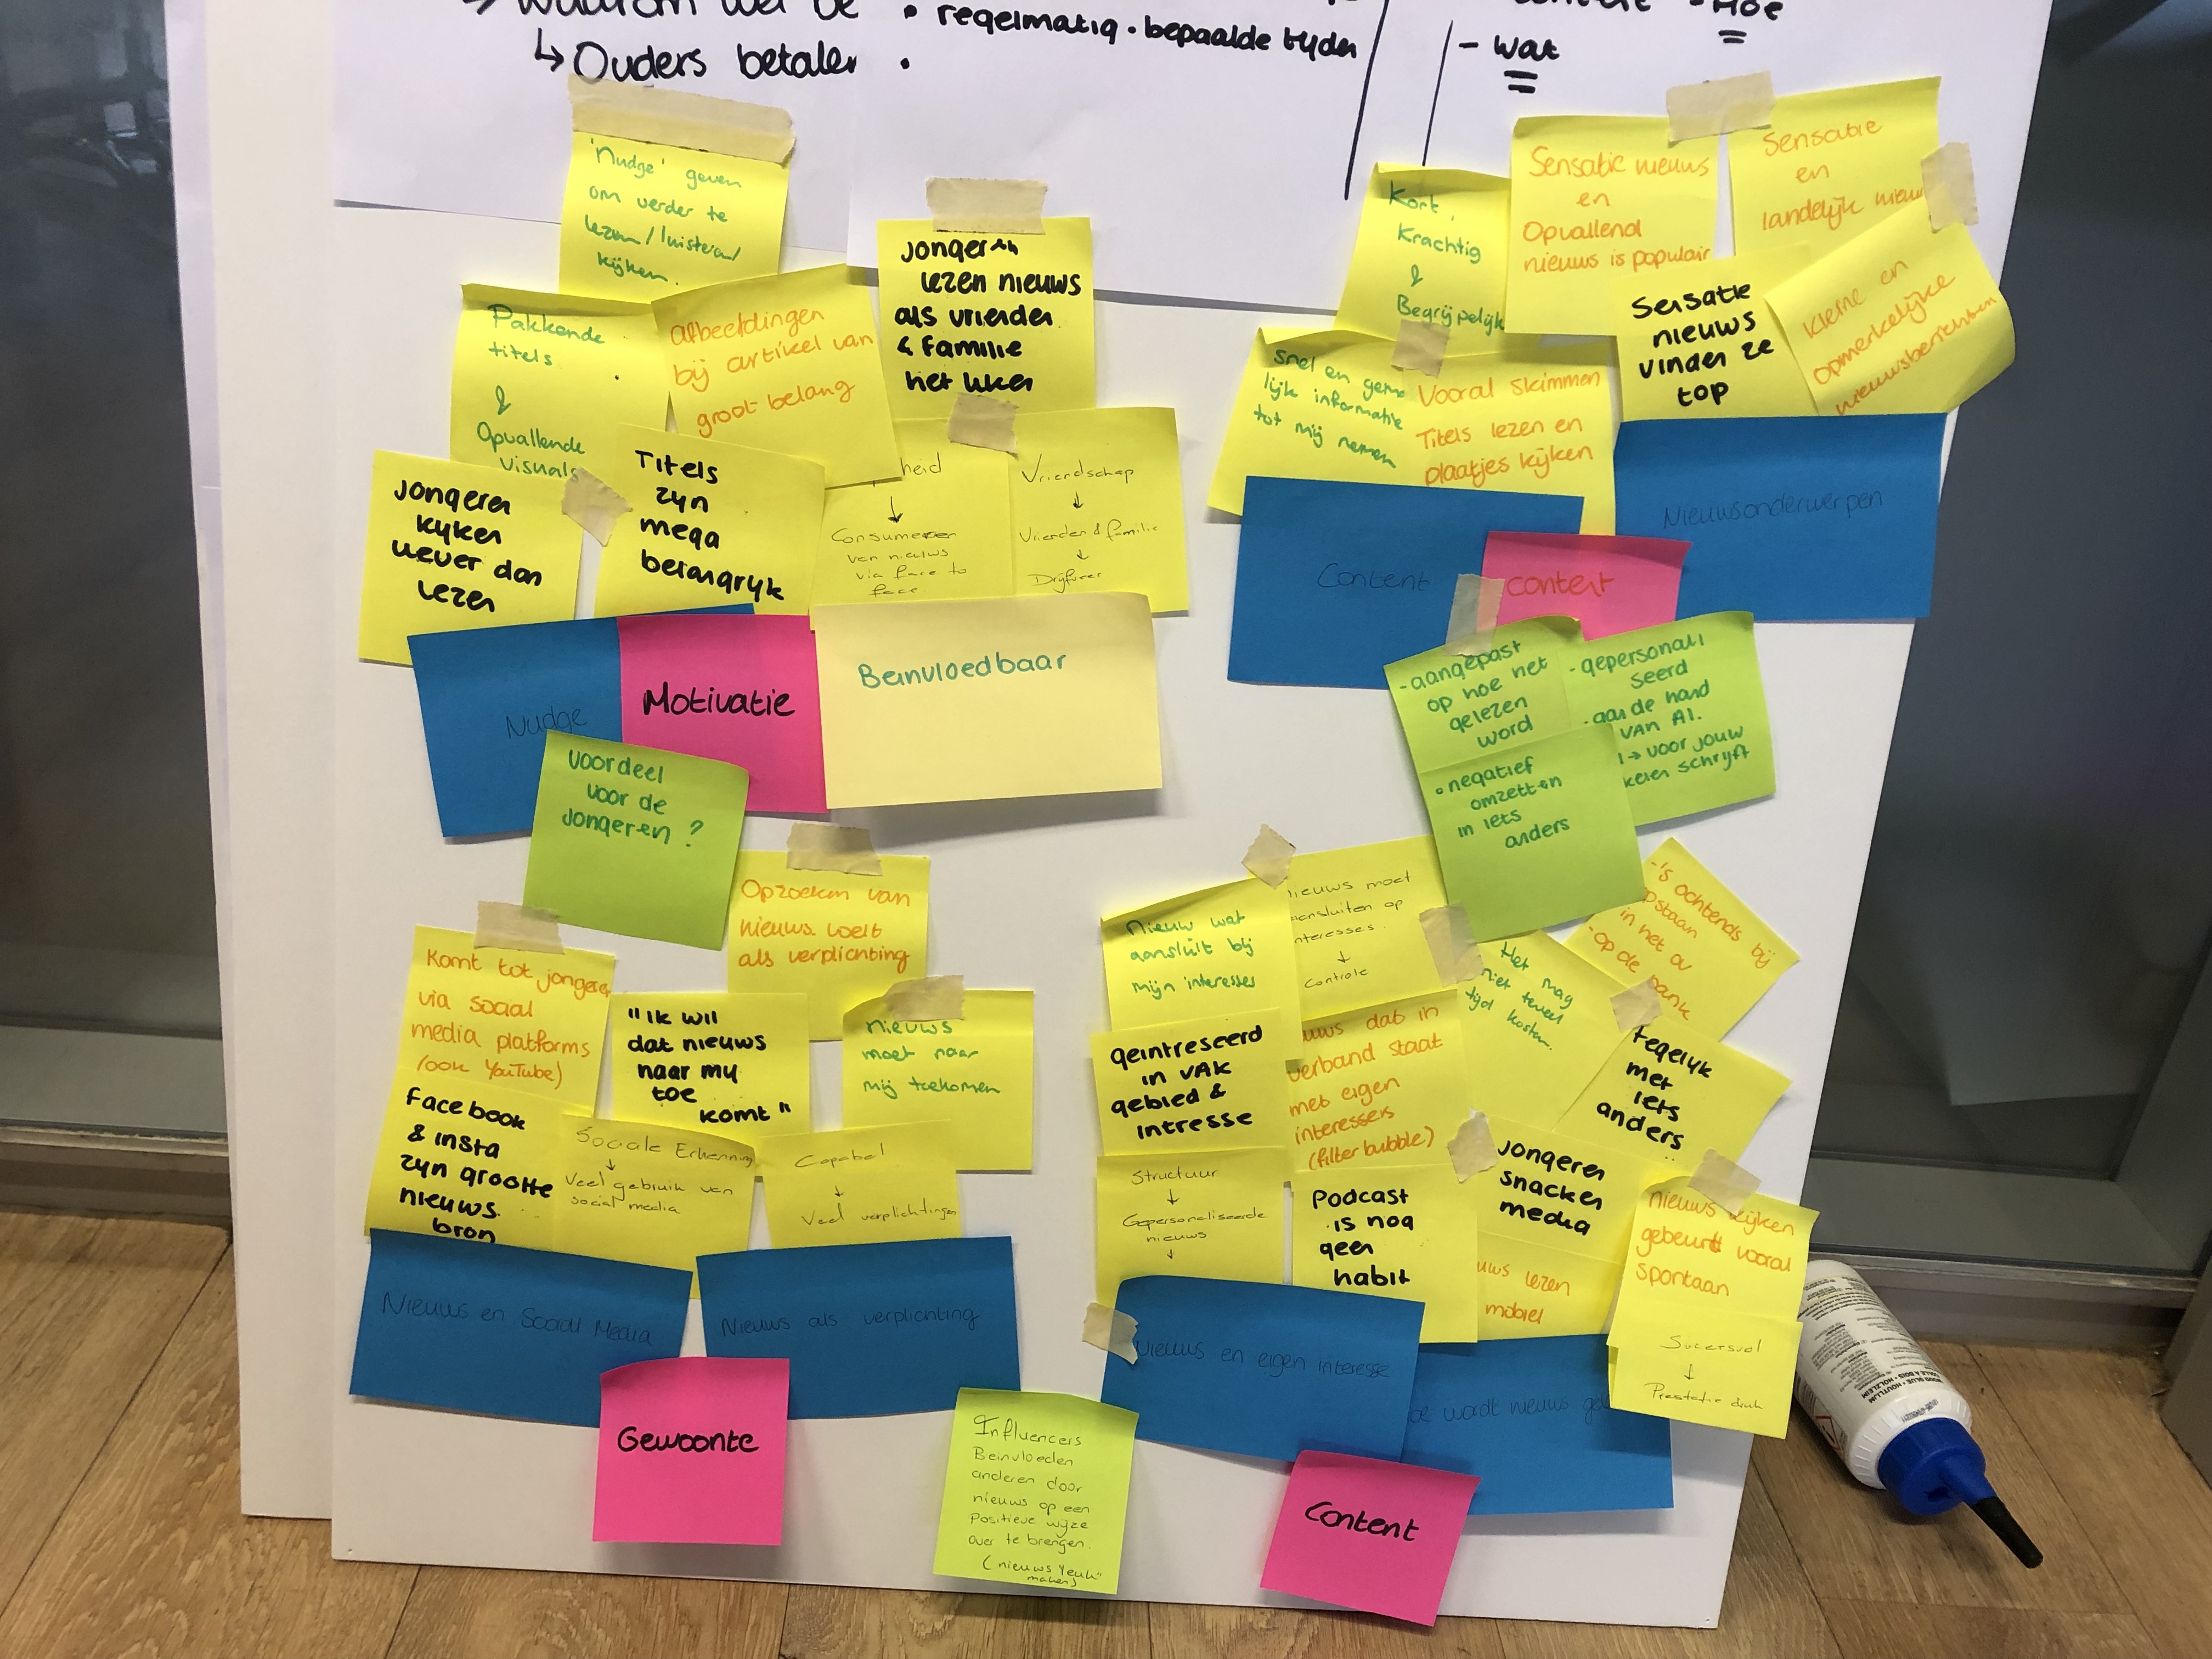 ↳ Ouders betalen •
• regelmatig • bepaalde tijden
- Hoe
- wat
'Nudge' geven
om verder te
lezen/luisteren/
kijken.
Pakkende
titels
&
Opvallende
visuals
afbeeldingen
bij artikel van
groot belang
jongeren
lezen nieuws
als vrienden
& familie
het liken
jongeren
kijken
liever dan
lezen
Titels
zijn
mega
belangrijk
heid
↓
Consumeren
van nieuws
via face to
face
Vriendschap
↓
Vrienden & familie
↓
Drijfveer
Nudge
Motivatie
Beinvloedbaar
voordeel
voor de
jongeren ?
Kort,
Krachtig
&
Begrijpelijk
Sensatie nieuws
en
Opvallend
nieuws is populair
Sensatie
en
landelijk nieuws
Sensatie
nieuws
vinden ze
top
kleine en
opmerkelijke
nieuwsberichten
snel en
lijk informatie
tot mij nemen
Vooral skimmen
Titels lezen en
plaatjes kijken
Content
content
Nieuwsonderwerpen
- aangepast
op hoe het
gelezen
word
- gepersonali
seerd
- aan de hand
van AI.
→ voor jouw
schrijft
• negatief
omzetten
in iets
anders
Opzoeken van
nieuws voelt
als verplichting
Komt tot jongeren
via social
media platforms
(ook YouTube)
"Ik wil
dat nieuws
naar mij
toe
komt"
nieuws
moet naar
mij toekomen
Facebook
& insta
zijn grootte
nieuws
bron
Sociale Erkenning
↓
Veel gebruik van
social media
Capabel
↓
Veel verplichtingen
Nieuws en Social Media
Nieuws als verplichting
Gewoonte
Influencers
Beinvloeden
anderen door
nieuws op een
Positieve wijze
over te brengen.
Nieuw wat
aansluit bij
mijn interesses
nieuws moet
aansluiten op
interesses.
↓
Controle
Het mag
niet teveel
tijd kosten.
-'s ochtends bij
opstaan
in het ov
- op de bank
geintreseerd
in vak
gebied &
intresse
uws dat in
verband staat
met eigen
interesses
(filter bubble)
tegelijk
met
iets
anders..
Structuur
↓
Gepersonaliseerde
nieuws
↓
Podcast
is nog
geen
habit
jongeren
snacken
media
uws lezen
mobiel
nieuws kijken
gebeurt vooral
spontaan
Succesvol
↓
Prestatie druk
Nieuws en eigen interesse
oe wordt nieuws
Content